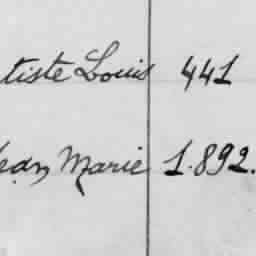 tiste Louis 441
Jean Marie 1.892.